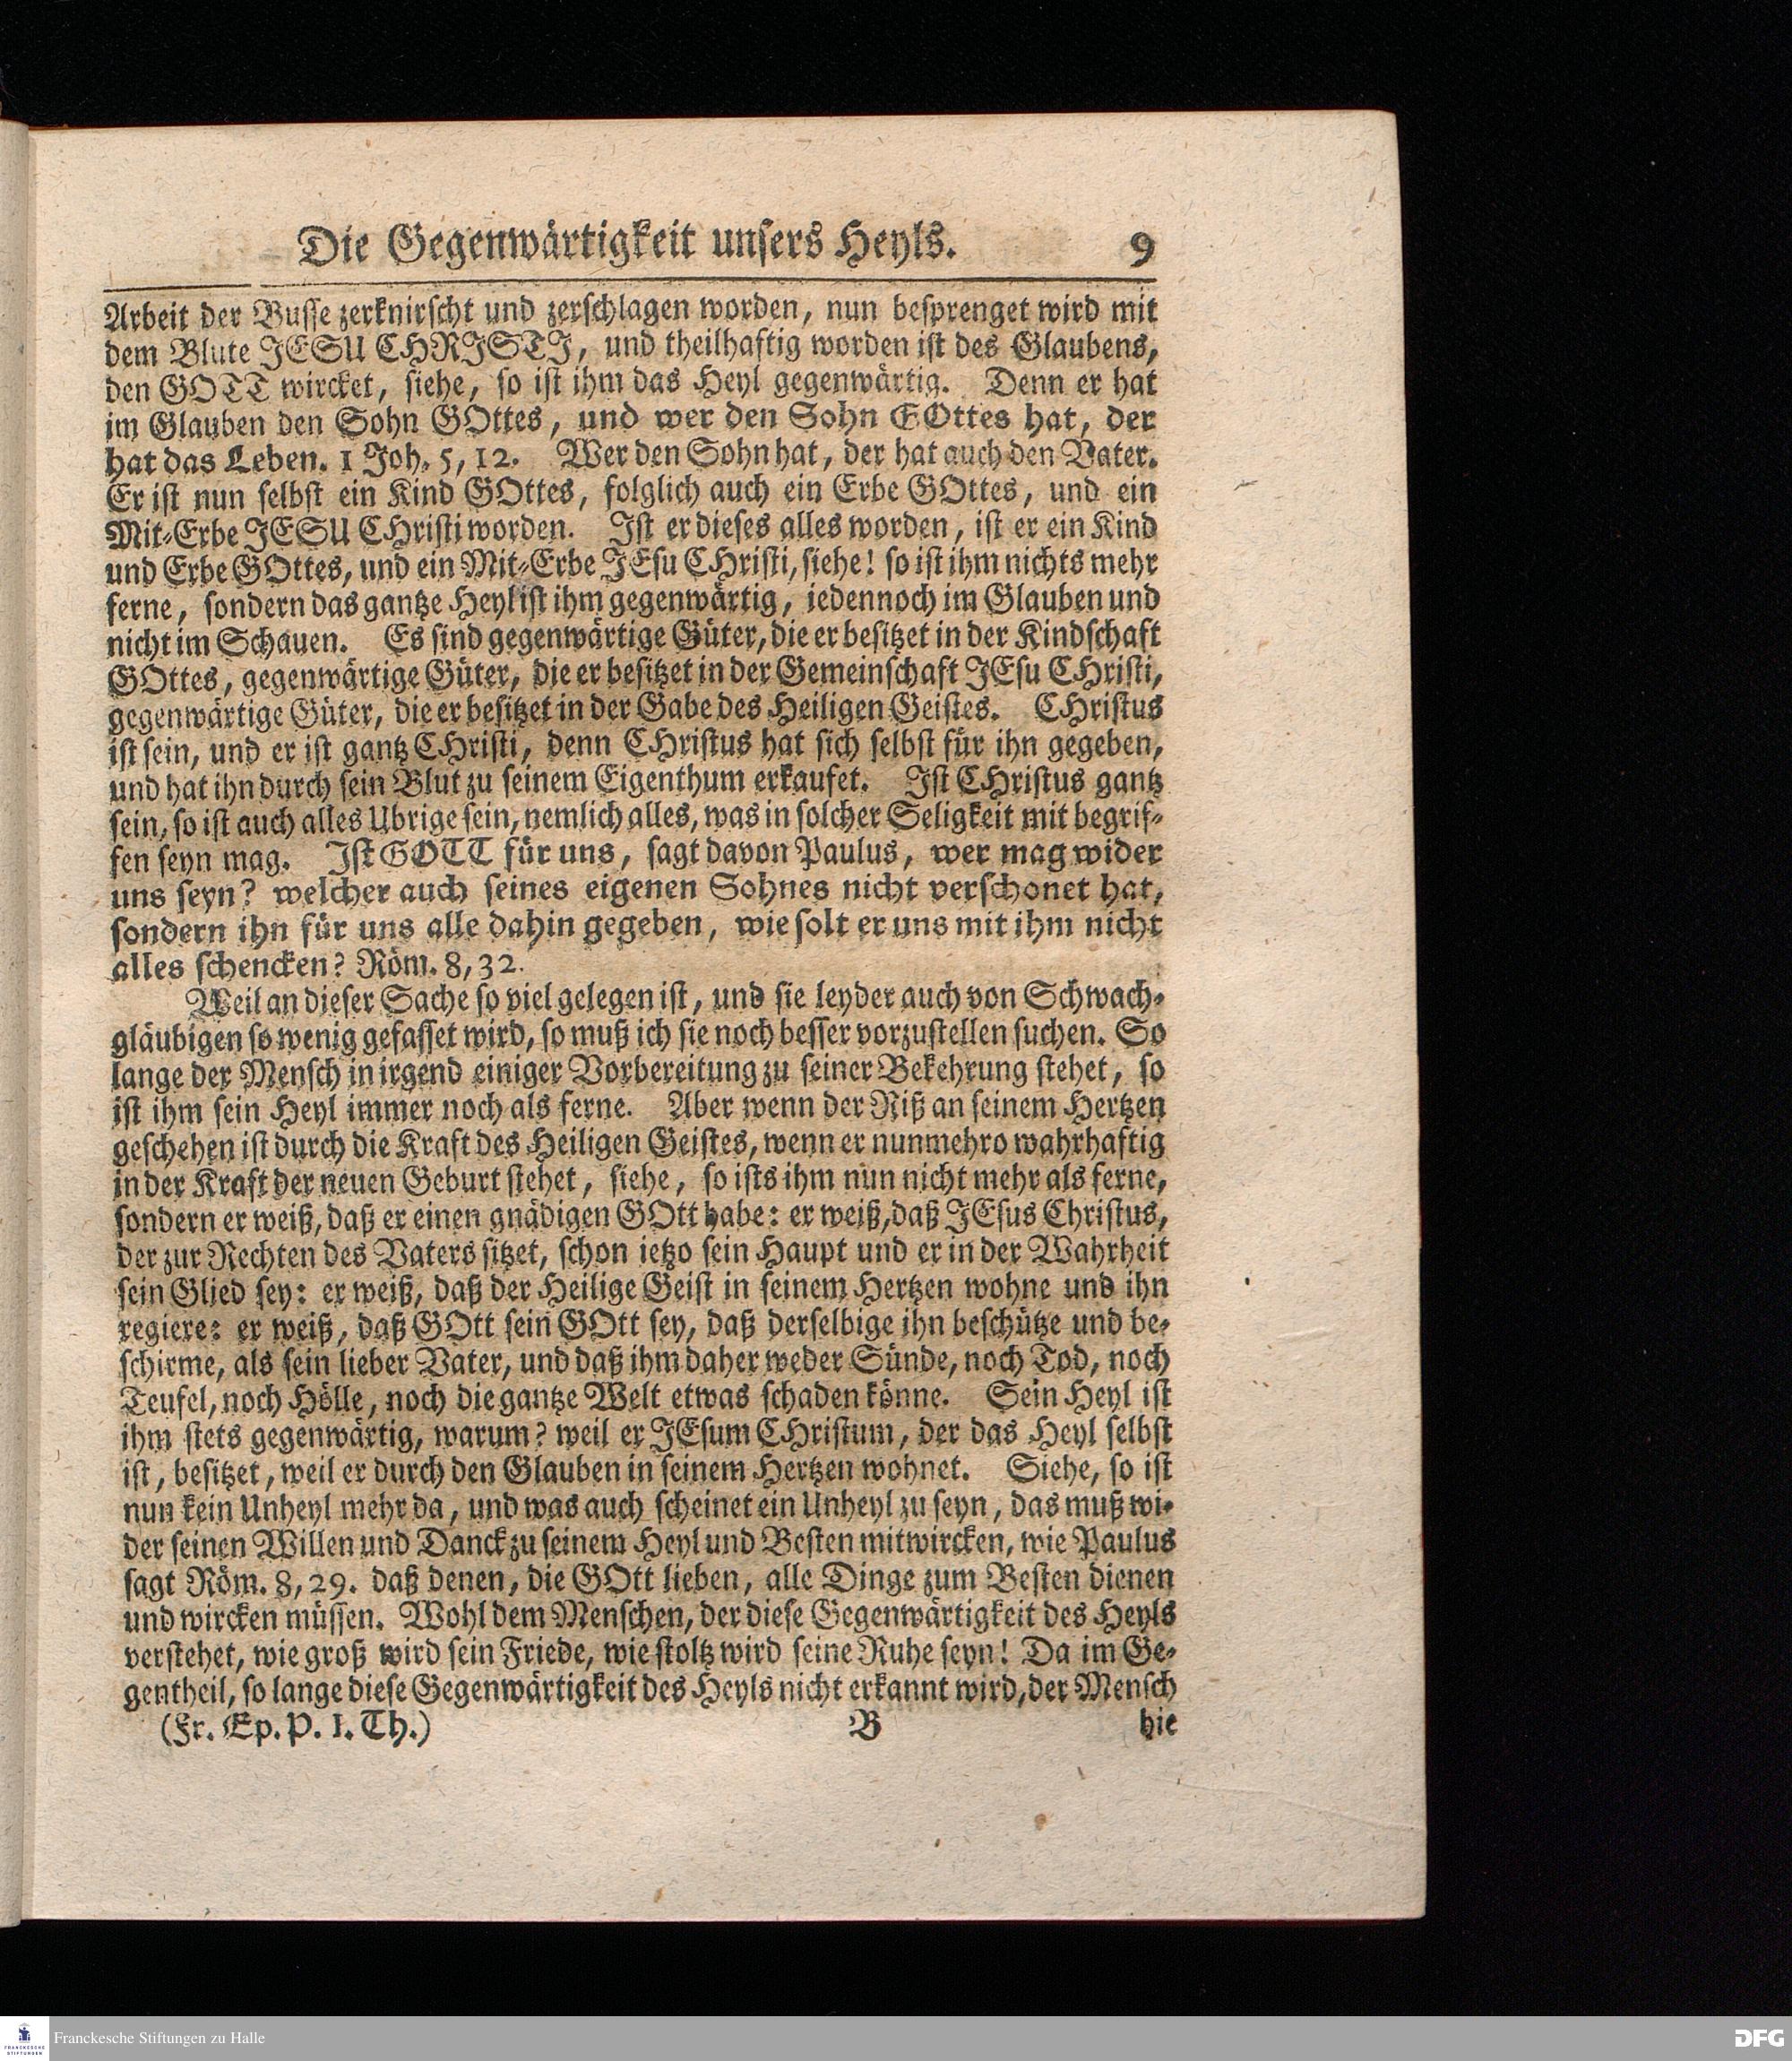 Die Gegenwärtigkeit unsers Heyls. 9
Arbeit der Busse zerknirscht und zerschlagen worden, nun besprenget wird mit
dem Blute JESU CHRISTI, und theilhaftig worden ist des Glaubens,
den GOTT wircket, siehe, so ist ihm das Heyl gegenwärtig. Denn er hat
im Glauben den Sohn GOttes, und wer den Sohn GOttes hat, der
hat das Leben. 1 Joh. 5, 12. Wer den Sohn hat, der hat auch den Vater.
Er ist nun selbst ein Kind GOttes, folglich auch ein Erbe GOttes, und ein
Mit-Erbe JESU CHristi worden. Ist er dieses alles worden, ist er ein Kind
und Erbe GOttes, und ein Mit-Erbe JEsu CHristi, siehe! so ist ihm nichts mehr
ferne, sondern das gantze Heyl ist ihm gegenwärtig, iedennoch im Glauben und
nicht im Schauen. Es sind gegenwärtige Güter, die er besitzet in der Kindschaft
GOttes, gegenwärtige Güter, die er besitzet in der Gemeinschaft JEsu CHristi,
gegenwärtige Güter, die er besitzet in der Gabe des Heiligen Geistes. CHristus
ist sein, und er ist gantz CHristi, denn CHristus hat sich selbst für ihn gegeben,
und hat ihn durch sein Blut zu seinem Eigenthum erkaufet. Ist CHristus gantz
sein, so ist auch alles Ubrige sein, nemlich alles, was in solcher Seligkeit mit begrif-
fen seyn mag. Ist GOTT für uns, sagt davon Paulus, wer mag wider
uns seyn? welcher auch seines eigenen Sohnes nicht verschonet hat,
sondern ihn für uns alle dahin gegeben, wie solt er uns mit ihm nicht
alles schencken? Röm. 8, 32.
Weil an dieser Sache so viel gelegen ist, und sie leyder auch von Schwach-
gläubigen so wenig gefasset wird, so muß ich sie noch besser vorzustellen suchen. So
lange der Mensch in irgend einiger Vorbereitung zu seiner Bekehrung stehet, so
ist ihm sein Heyl immer noch als ferne. Aber wenn der Riß an seinem Hertzen
geschehen ist durch die Kraft des Heiligen Geistes, wenn er nunmehro wahrhaftig
in der Kraft der neuen Geburt stehet, siehe, so ists ihm nun nicht mehr als ferne,
sondern er weiß, daß er einen gnädigen GOtt habe: er weiß, daß JEsus Christus,
der zur Rechten des Vaters sitzet, schon ietzo sein Haupt und er in der Wahrheit
sein Glied sey: er weiß, daß der Heilige Geist in seinem Hertzen wohne und ihn
regiere: er weiß, daß GOtt sein GOtt sey, daß derselbige ihn beschütze und be-
schirme, als sein lieber Vater, und daß ihm daher weder Sünde, noch Tod, noch
Teufel, noch Hölle, noch die gantze Welt etwas schaden könne. Sein Heyl ist
ihm stets gegenwärtig, warum? weil er JEsum CHristum, der das Heyl selbst
ist, besitzet, weil er durch den Glauben in seinem Hertzen wohnet. Siehe, so ist
nun kein Unheyl mehr da, und was auch scheinet ein Unheyl zu seyn, das muß wi-
der seinen Willen und Danck zu seinem Heyl und Besten mitwircken, wie Paulus
sagt Röm. 8, 29. daß denen, die GOtt lieben, alle Dinge zum Besten dienen
und wircken müssen. Wohl dem Menschen, der diese Gegenwärtigkeit des Heyls
verstehet, wie groß wird sein Friede, wie stoltz wird seine Ruhe seyn! Da im Ge-
gentheil, so lange diese Gegenwärtigkeit des Heyls nicht erkannt wird, der Mensch
(Fr. Ep. P. I. Th.) B hie
FRANCKESCHE STIFTUNGEN
Franckesche Stiftungen zu Halle
DFG